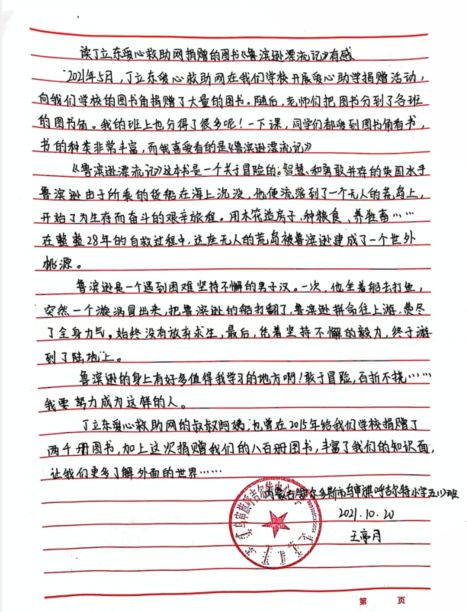 读丁立东爱心救助网捐赠的图书《鲁滨逊漂流记》有感
2021年5月，丁立东爱心救助网在我们学校开展爱心助学捐赠活动，
向我们学校的图书角捐赠了大量的图书。随后，老师们把图书分到了各班
的图书角。我的班上也分得了很多呢！一下课，同学们都爱到图书角看书，
书的种类非常丰富，而我喜爱看的是《鲁滨逊漂流记》
《鲁滨逊漂流记》这本书是一个关于冒险的。智慧和勇敢并存的英国水手
鲁滨逊由于所乘的货船在海上沉没，他便流落到了一个无人的荒岛上，
开始了为生存而奋斗的艰辛旅程。用木花造房子，种粮食、养牲畜……
在整整28年的自救过程中，这座无人的荒岛被鲁滨逊建成了一个世外
桃源。
鲁滨逊是一个遇到困难坚持不懈的男子汉。一次，他坐着船去打鱼，
突然一个漩涡冒出来，把鲁滨逊的船打翻了，鲁滨逊拼命往上游，费尽
了全身力气。始终没有放弃求生，最后，凭着坚持不懈的毅力，终于游
到了陆地上。
鲁滨逊的身上有好多值得我学习的地方啊！敢于冒险，百折不挠……
我要努力成为这样的人。
丁立东爱心救助网的叔叔阿姨，也曾在2015年给我们学校捐赠了
两千册图书，加上这次捐赠我们的八百册图书，丰富了我们的知识面，
让我们更多了解外面的世界……
内蒙古鄂尔多斯市乌审旗呼吉尔特小学五(1)班
2021.10.20
王亭月
第 页